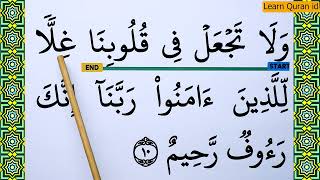 Learn Quran id
وَلَا تَجْعَلْ فِى قُلُوبِنَا غِلًّا
END START
لِّلَّذِينَ ءَامَنُوا۟ رَبَّنَآ إِنَّكَ
رَءُوفٌ رَّحِيمٌ ١٠